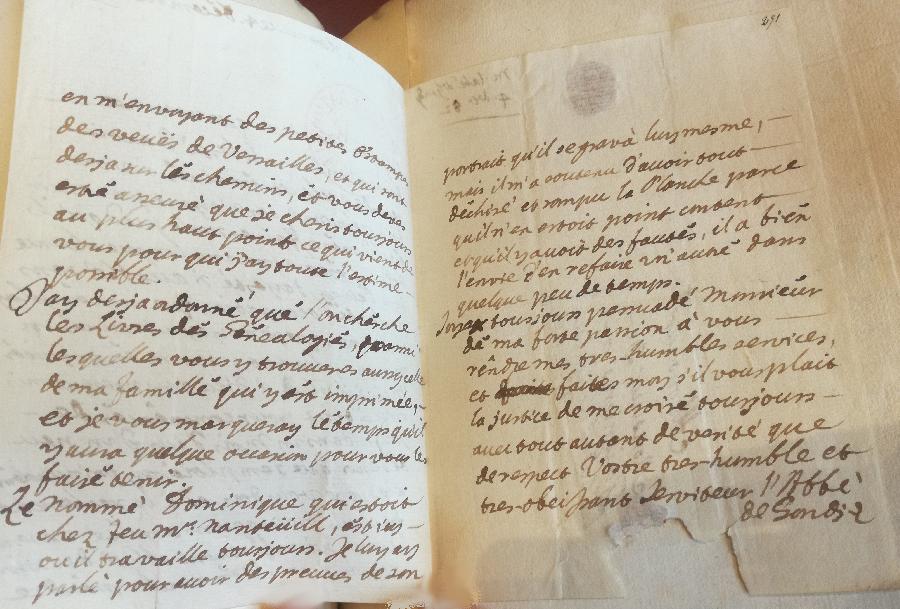 en m'envoyant des petites Estampes
des veuës de Versailles, et qui sont
desja sur les chemins, et vous devez
estré asseuré que je cheris tousjours
au plus haut point ce qui vient de
vous pour qui j'ay toute l'estime
possible.
J'ay desja ordonné que l'on chésche
les Livres dés Généalogiés, parmi
lesquelles vous y trouveres aussy celle
de ma famillé qui y ést imprimée,
et je vous marqueray lé temps qu'il
y aura quelque occasion pour vous les
fairé tenir.
Le Nommé Dominique qui estoit
chez feu mr. Nanteuill, est icy
ou il travaille tousjours. Je luy ay
parlé pour avoir des preuves de son
291
portrait qu'il se grava luy mesme,
mais il m'a soutenu d'avoir tout
déchiré et rompu la Planche parce
qu'il n'en estoit point content
et qu'il y avoit des fautés, il a bién
l'envie d'en refaire un autré dans
quelque peu de temps.
Soyez tousjours persuadé Monsieur
dé ma forte passion à vous
réndre mes tres humbles services,
et faités moy s'il vous plait
la justice de me croiré tousjours
avec tout autant dé verité que
de respect Vostre tres-humble et
tres-obeissant Serviteur l'Abbé
de Gondi